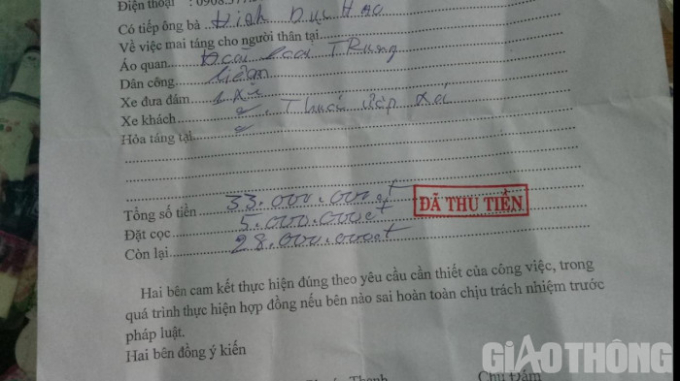 Điện thoại : 0908.5
Có tiếp ông bà Đinh Đức Hoa
Về việc mai táng cho người thân tại
Áo quan Trung
Dân công
Xe đưa đám 1 xe
Xe khách
Hỏa táng tại
Tổng số tiền 33.000.000đ
ĐÃ THU TIỀN
Đặt cọc 5.000.000đ
Còn lại 28.000.000đ
Hai bên cam kết thực hiện đúng theo yêu cầu cần thiết của công việc, trong
quá trình thực hiện hợp đồng nếu bên nào sai hoàn toàn chịu trách nhiệm trước
pháp luật.
Hai bên đồng ý kiến
Thanh Chủ Đám
GIAOTHÔNG